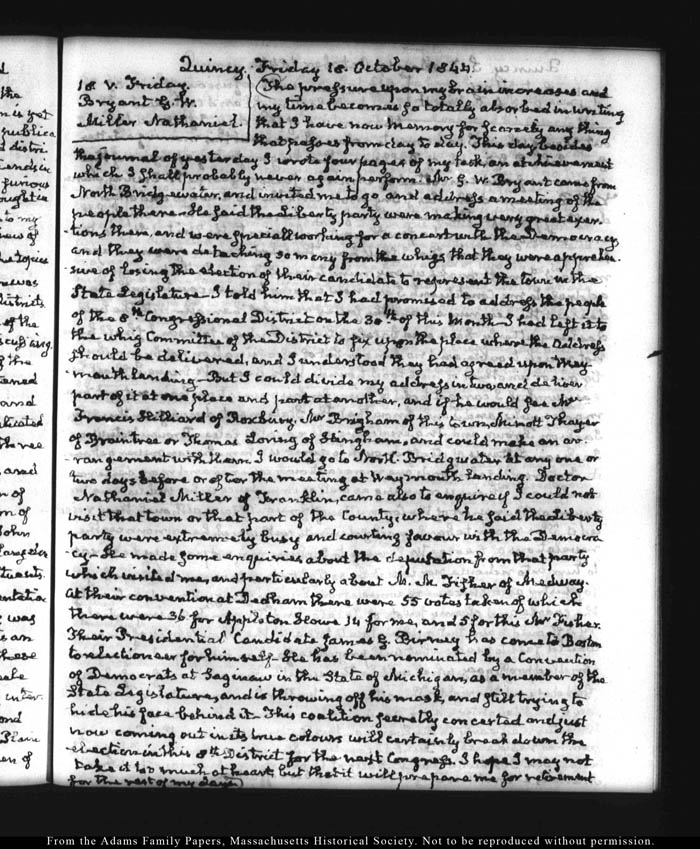 Quincy Friday 18. October 1844
18. V. Friday.
Bryant G. W.
Miller Nathaniel.
The pressure upon my brain increases and
my time becomes so totally absorbed in writing
that I have now memory for scarcely any thing
that passes from day to day. This day besides
the journal of yesterday I wrote four pages of my task, an atchievement
which I shall probably never again perform. Mr G. W. Bryant came from
North Bridgewater, and invited me to go and address a meeting of the
people there. He said the Liberty party were making very great exer-
tions there, and were specially working for a concert with the Democracy
and they were detaching so many from the whigs that they were apprehen-
sive of losing the election of their candidate to represent the town in the
State Legislature. I told him that I had promised to address the people
of the 8th Congressional District on the 30th of this Month. I had left it to
the whig Committee of the District to fix upon the place where the address
should be delivered, and I understood they had agreed upon Wey-
mouth landing. But I could divide my address in two, and deliver
part of it at one place and part at another, and if he would see Mr
Francis Hilliard of Roxbury, Mr Brigham of this town, Minott Thayer
of Braintree or Thomas Loring of Hingham, and could make an ar-
rangement with them I would go to North Bridgwater at any one or
two days before or after the meeting at Weymouth landing. Doctor
Nathaniel Miller of Franklin, came also to enquire if I could not
visit that town or that part of the County, where he said the Liberty
party were extremely busy and courting favour with the Democra-
cy. He made some enquiries about the deputation from that party
which visited me, and particularly about M. M. Fisher of Medway.
At their convention at Dedham there were 55 votes taken of which
there were 36 for Appleton Howe 14 for me, and 5 for this Mr Fisher.
Their Presidential Candidate James G. Birney has come to Boston
to electioneer for himself. He has been nominated by a Convention
of Democrats at Saginaw in the State of Michigan, as a member of the
State Legislature, and is throwing off his mask, and still trying to
hide his face behind it. This coalition secretly concerted and just
now coming out in its true colours will certainly break down the
election in this 8th District for the next Congress. I hope I may not
take it too much at heart, but that it will prepare me for retirement
for the rest of my days
From the Adams Family Papers, Massachusetts Historical Society. Not to be reproduced without permission.